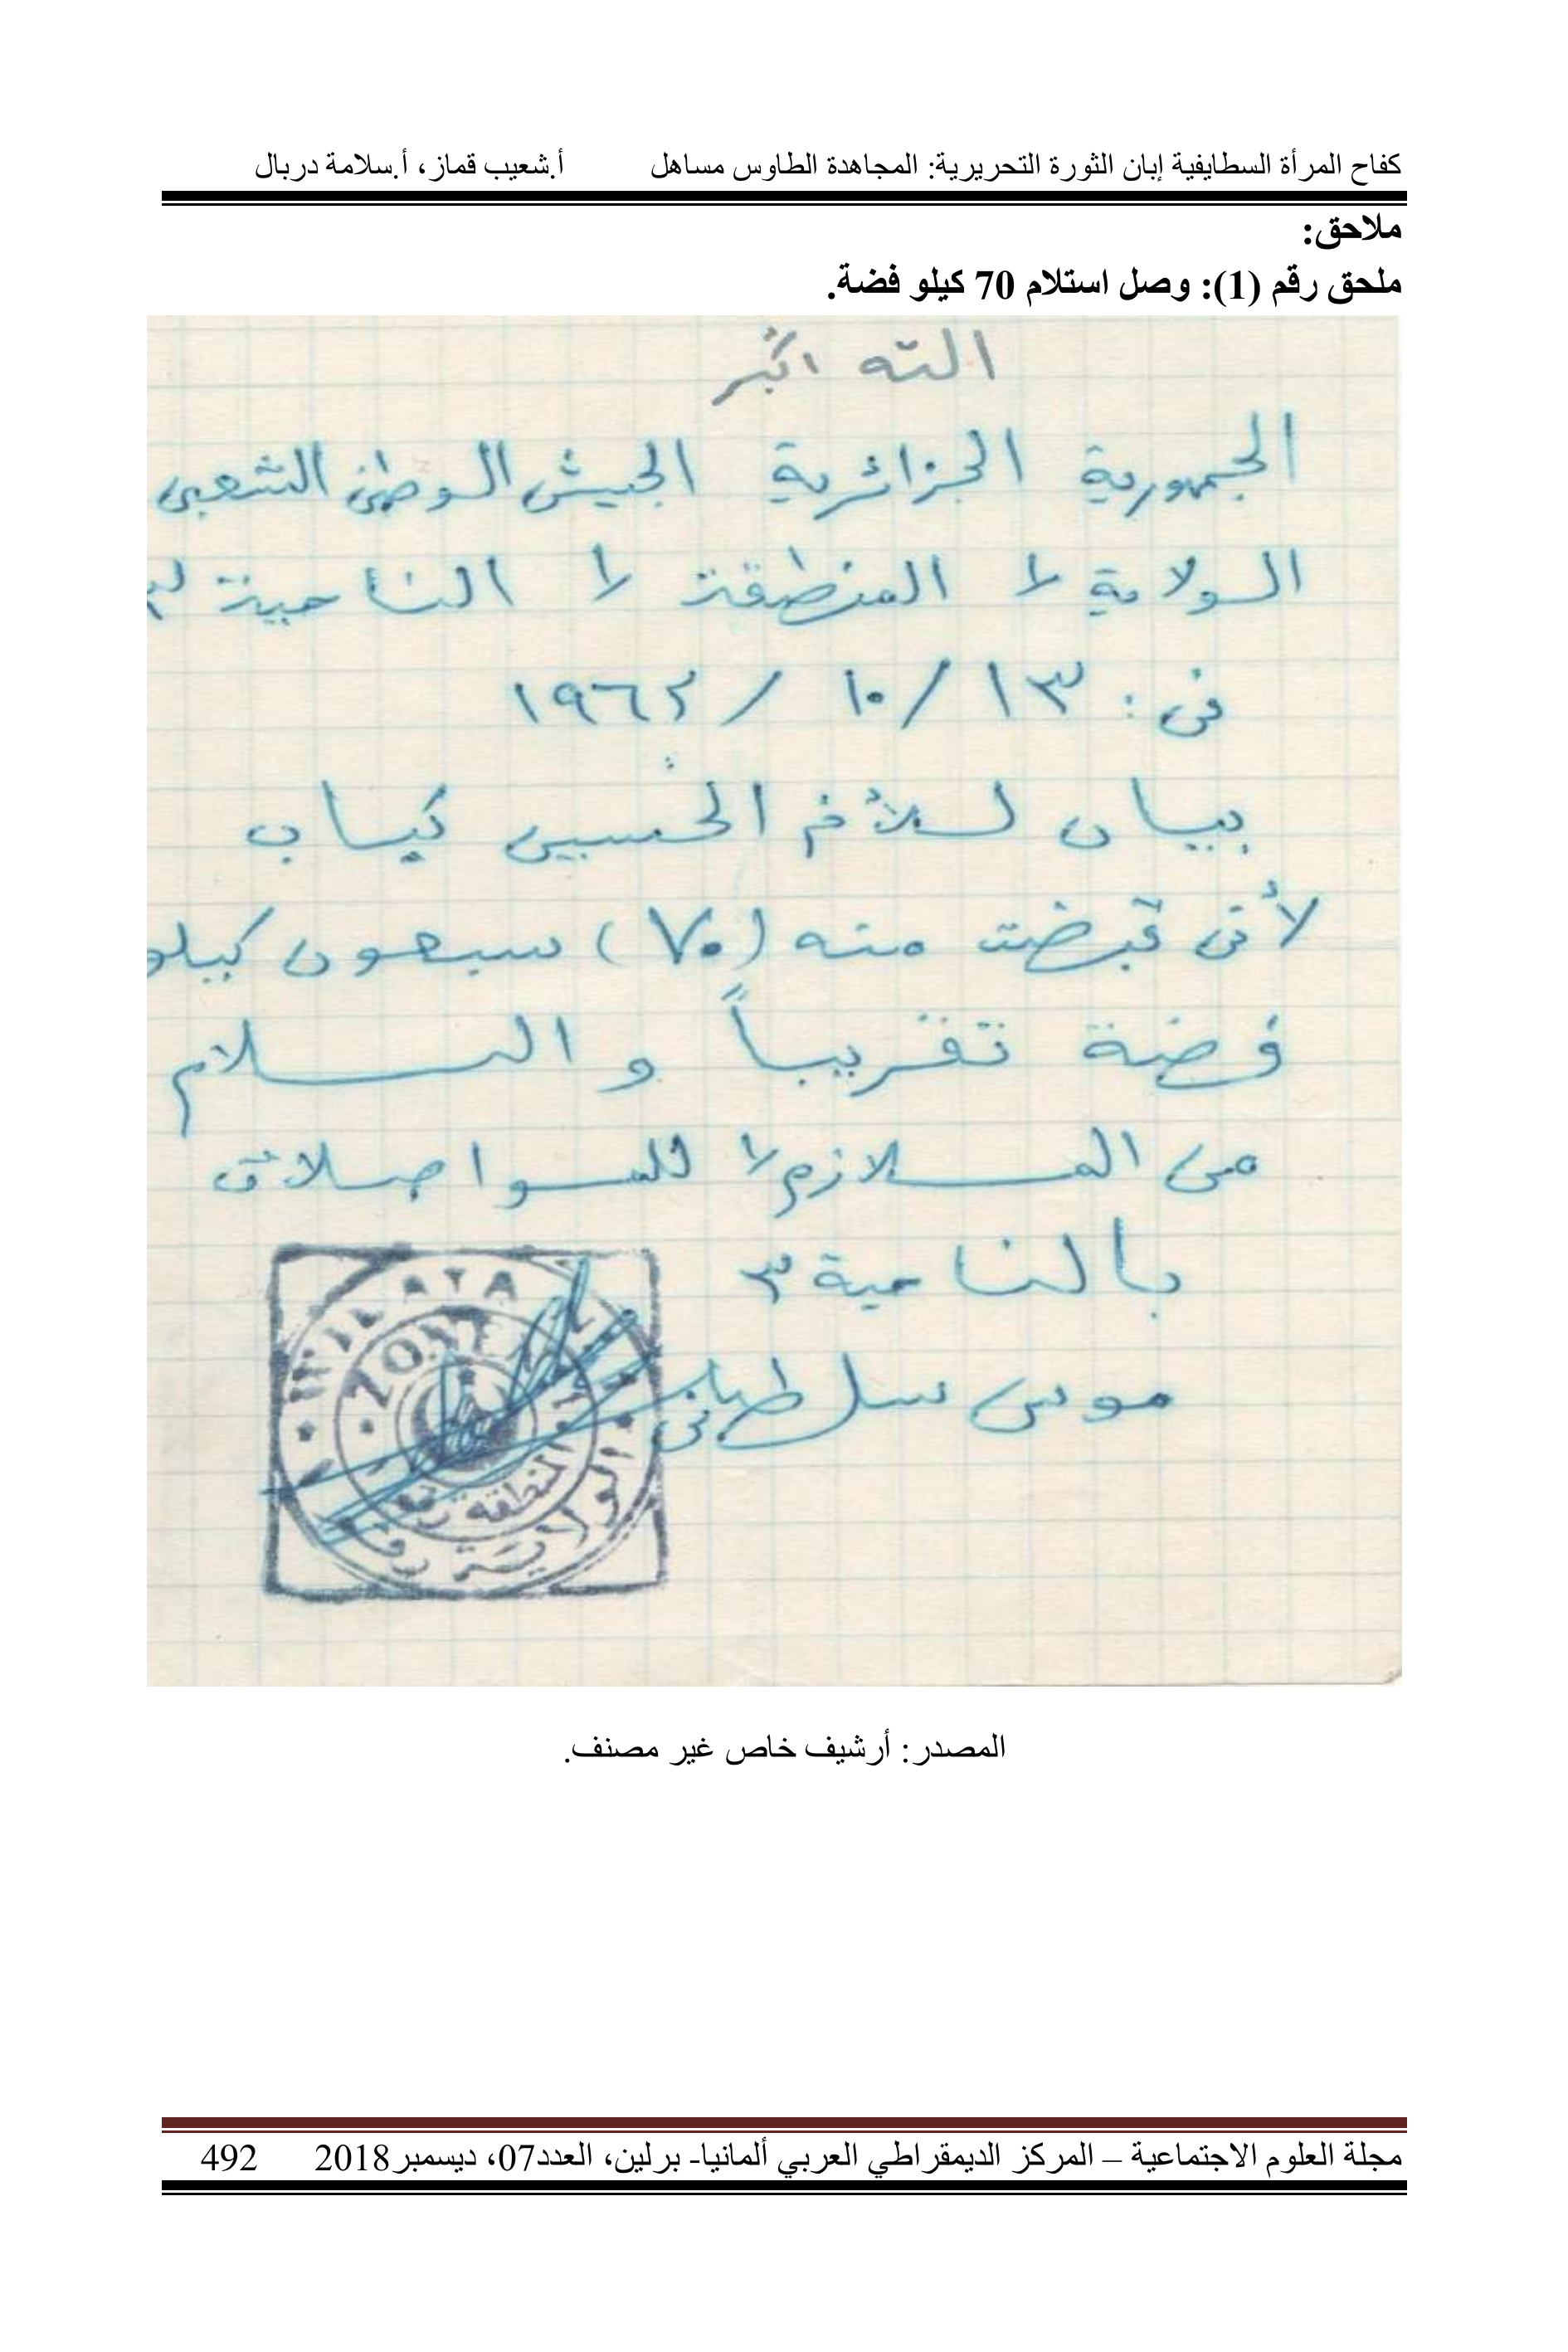 كفاح المرأة السطايفية إبان الثورة التحريرية: المجاهدة الطاوس مساهل أ.شعيب قماز، أ.سلامة دربال
ملاحق:
ملحق رقم (1): وصل استلام 70 كيلو فضة.
الله اكبر
الجمهورية الجزائرية الجيش الوطني الشعبي
الولاية ١ المنطقة ١ الناحية ٣
في: ١٣/ ١٠ / ١٩٦٢
بيان للأخ الحسين كياب
لأني قبضت منه (٧٠) سبعون كيلو
فضة تقريباً والسلام
من الملازم ١ للمواصلات
بالناحية ٣
موسى سلطاني
WILAYA
ZONE
المنطقة
الولاية
المصدر: أرشيف خاص غير مصنف.
مجلة العلوم الاجتماعية – المركز الديمقراطي العربي ألمانيا- برلين، العدد07، ديسمبر2018 492